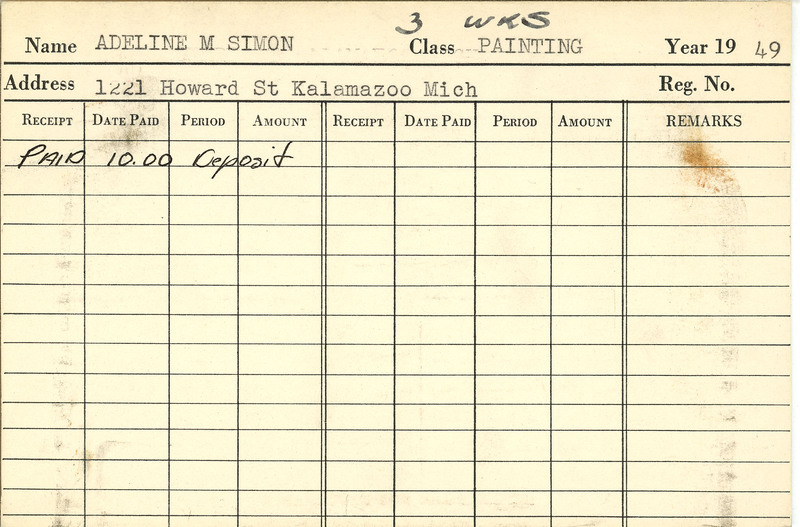 3 WKS
Name ADELINE M SIMON Class PAINTING Year 19 49
Address 1221 Howard St Kalamazoo Mich Reg. No.
RECEIPT DATE PAID PERIOD AMOUNT RECEIPT DATE PAID PERIOD AMOUNT REMARKS
PAID 10.00 Deposit